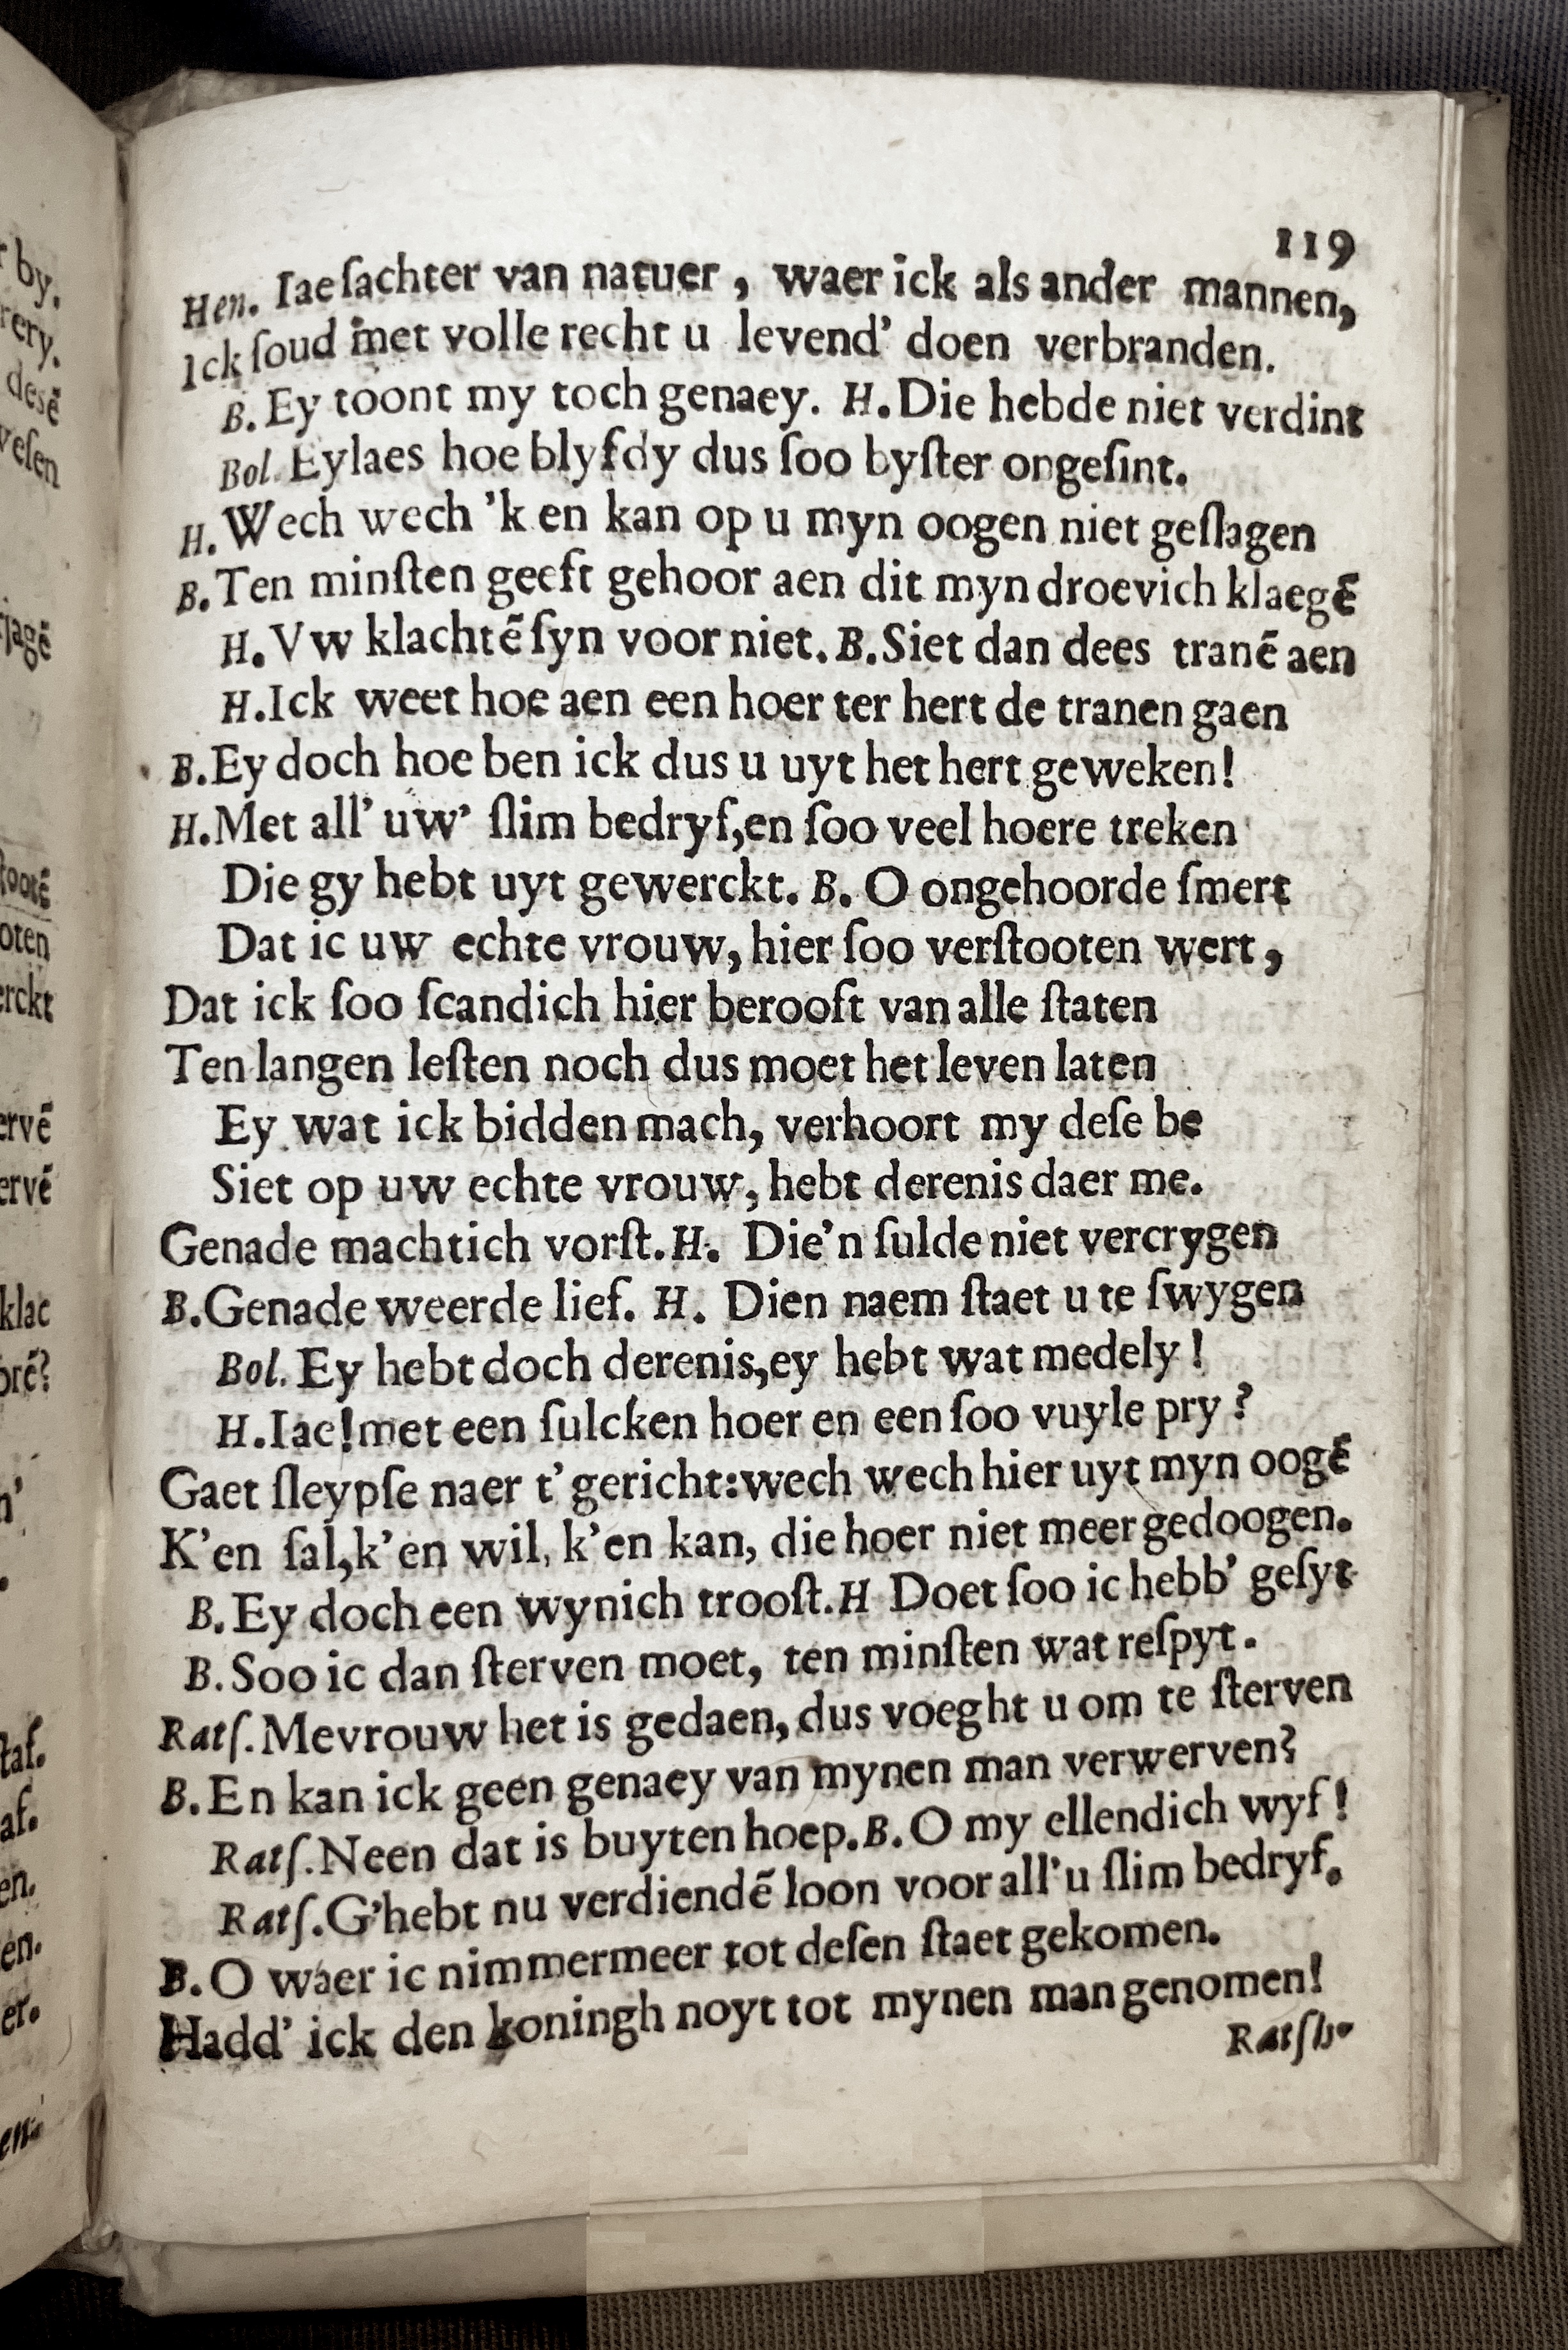 119
Hen. Iae ſachter van natuer, waer ick als ander mannen,
Ick ſoud met volle recht u levend' doen verbranden.
B. Ey toont my toch genaey. H. Die hebde niet verdint
Bol. Eylaes hoe blyfdy dus ſoo byſter ongeſint.
H. Wech wech 'k en kan op u myn oogen niet geſlagen
B. Ten minſten geeft gehoor aen dit myn droevich klaegē
H. Vw klachtē ſyn voor niet. B. Siet dan dees tranē aen
H. Ick weet hoe aen een hoer ter hert de tranen gaen
B. Ey doch hoe ben ick dus u uyt het hert geweken!
H. Met all' uw' ſlim bedryf, en ſoo veel hoere treken
Die gy hebt uyt gewerckt. B. O ongehoorde ſmert
Dat ic uw echte vrouw, hier ſoo verſtooten wert,
Dat ick ſoo ſcandich hier berooft van alle ſtaten
Ten langen leſten noch dus moet het leven laten
Ey wat ick bidden mach, verhoort my deſe be
Siet op uw echte vrouw, hebt derenis daer me.
Genade machtich vorſt. H. Die'n ſulde niet vercrygen
B. Genade weerde lief. H. Dien naem ſtaet u te ſwygen
Bol. Ey hebt doch derenis, ey hebt wat medely!
H. Iae! met een ſulcken hoer en een ſoo vuyle pry?
Gaet ſleypſe naer t' gericht: wech wech hier uyt myn oogē
K'en ſal, k'en wil, k'en kan, die hoer niet meer gedoogen.
B. Ey doch een wynich trooſt. H Doet ſoo ic hebb' geſyt
B. Soo ic dan ſterven moet, ten minſten wat reſpyt.
Ratſ. Mevrouw het is gedaen, dus voeght u om te ſterven
B. En kan ick geen genaey van mynen man verwerven?
Ratſ. Neen dat is buyten hoep. B. O my ellendich wyf!
Ratſ. G'hebt nu verdiendē loon voor all' u ſlim bedryf.
B. O waer ic nimmermeer tot deſen ſtaet gekomen.
Hadd' ick den koningh noyt tot mynen man genomen!
Ratſh.